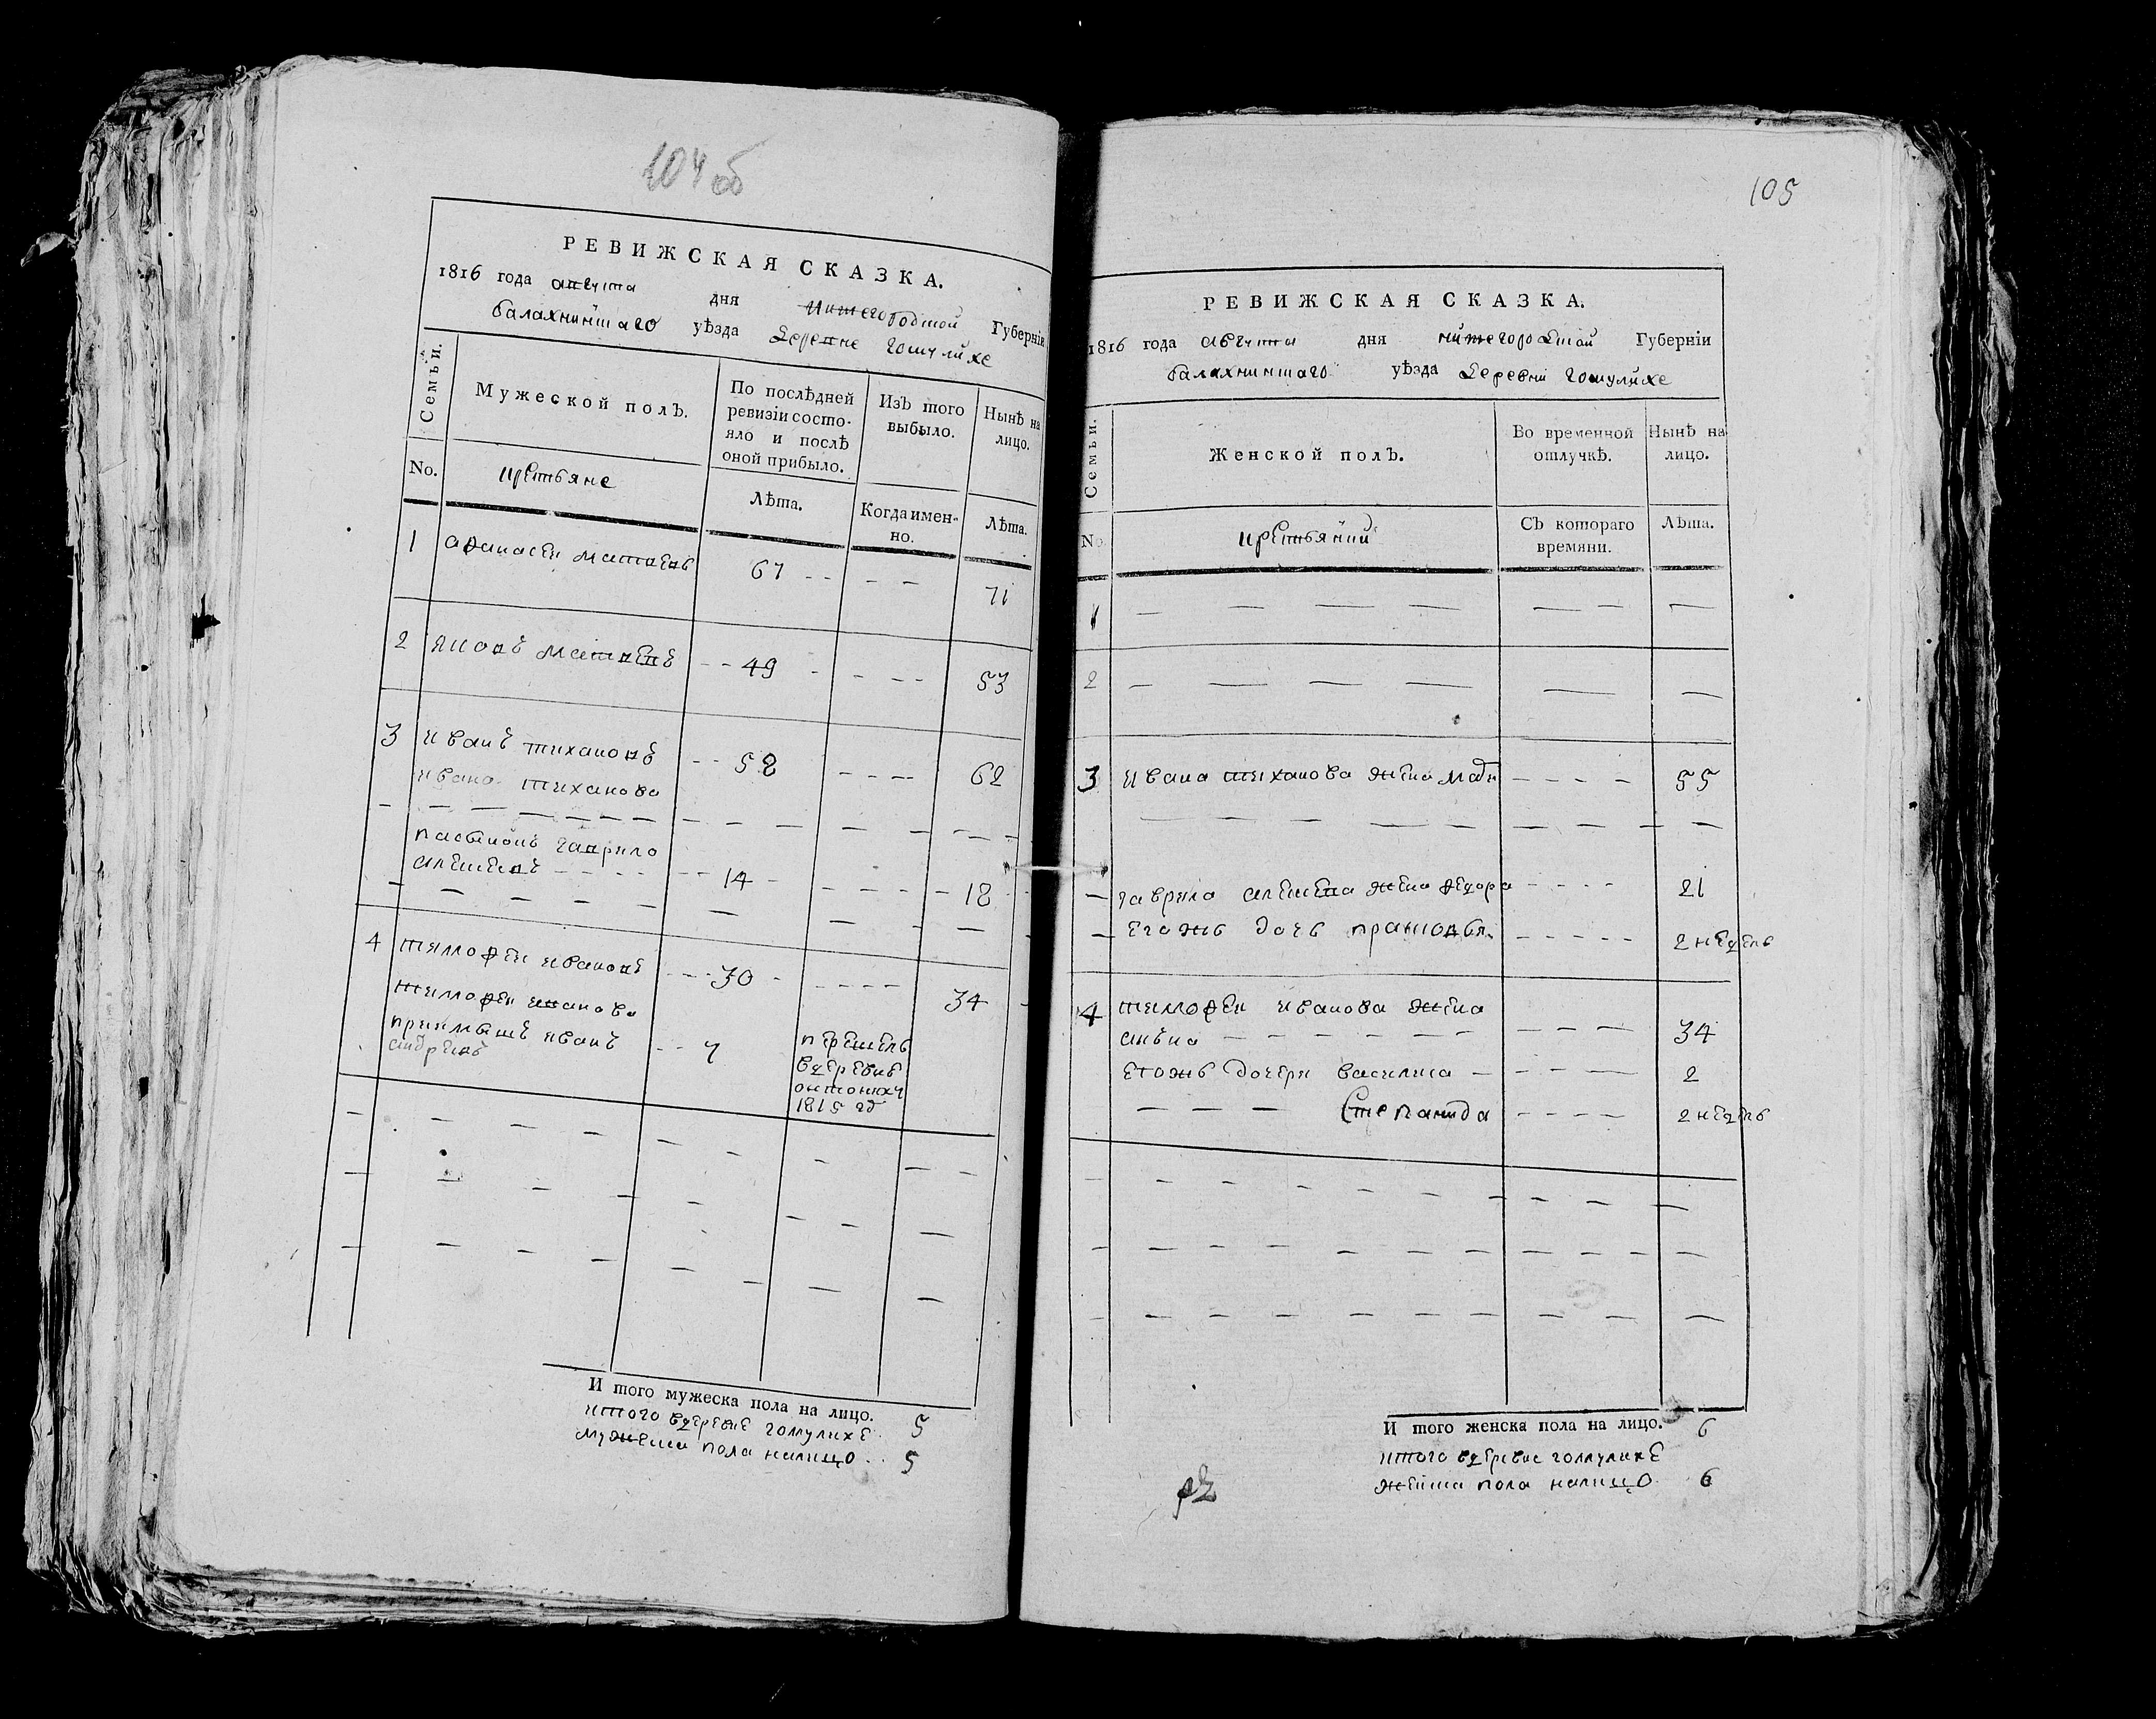 104 об
РЕВИЖСКАЯ СКАЗКА.
1816 года августа дня нижегородской Губерніи
балахнинскаго уѣзда деревне гомулихе
Семьи. Мужеской полъ. По послѣдней ревизіи состояло и послѣ оной прибыло. Изъ того выбыло. Нынѣ на лицо.
No. крестьяне Лѣта. Когда имен-но. Лѣта.
1 афанасеи матвевъ 67 - - - - 71
2 яковъ матвевъ - - 49 - - - - 53
3 иванъ тихановъ - - 58 - - - 62
ивана тиханова
пасынокъ гаврило
алексеевъ - - - - 14 - - - - - 18
4 тимофеи ивановъ - - - 30 - - - - - 34
тимофеи иванова
приимышъ иванъ - - 7 перешелъ
андреевъ вдеревню
1815 гд
И того мужеска пола на лицо. 5
итого вдеревне гомулихе
мужеска пола налицо . . 5
105
РЕВИЖСКАЯ СКАЗКА.
1816 года августа дня нижегородской Губерніи
балахнинскаго уѣзда деревни гомулихе
Семьи. Женской полъ. Во временной отлучкѣ. Нынѣ на лицо.
No. крестьянки Съ котораго времяни. Лѣта.
1 — — — — — — —
2 — — — — — —
3 ивана тиханова жена - - - - 55
гаврила алексеева жена федора - - - - 21
егожъ дочь прасковья - - - - - 2 неделъ
4 тимофеи иванова жена
анъна - - - - - - - - - 34
егожъ дочери василиса - - - - 2
— — — степанида - - - - 2 неделъ
И того женска пола на лицо. 6
итого вдеревне гомулихе
женска пола налицо. 6